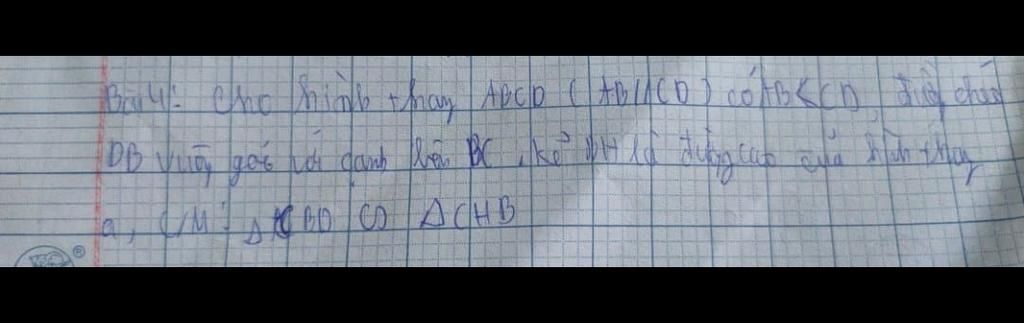 Bài 4: Cho hình thang ABCD (AB//CD) có AB<CD, đường chéo
DB vuông góc với cạnh bên BC, kẻ BH là đường cao của hình thang
a, C/M: ΔCBD ∽ ΔCHB
®